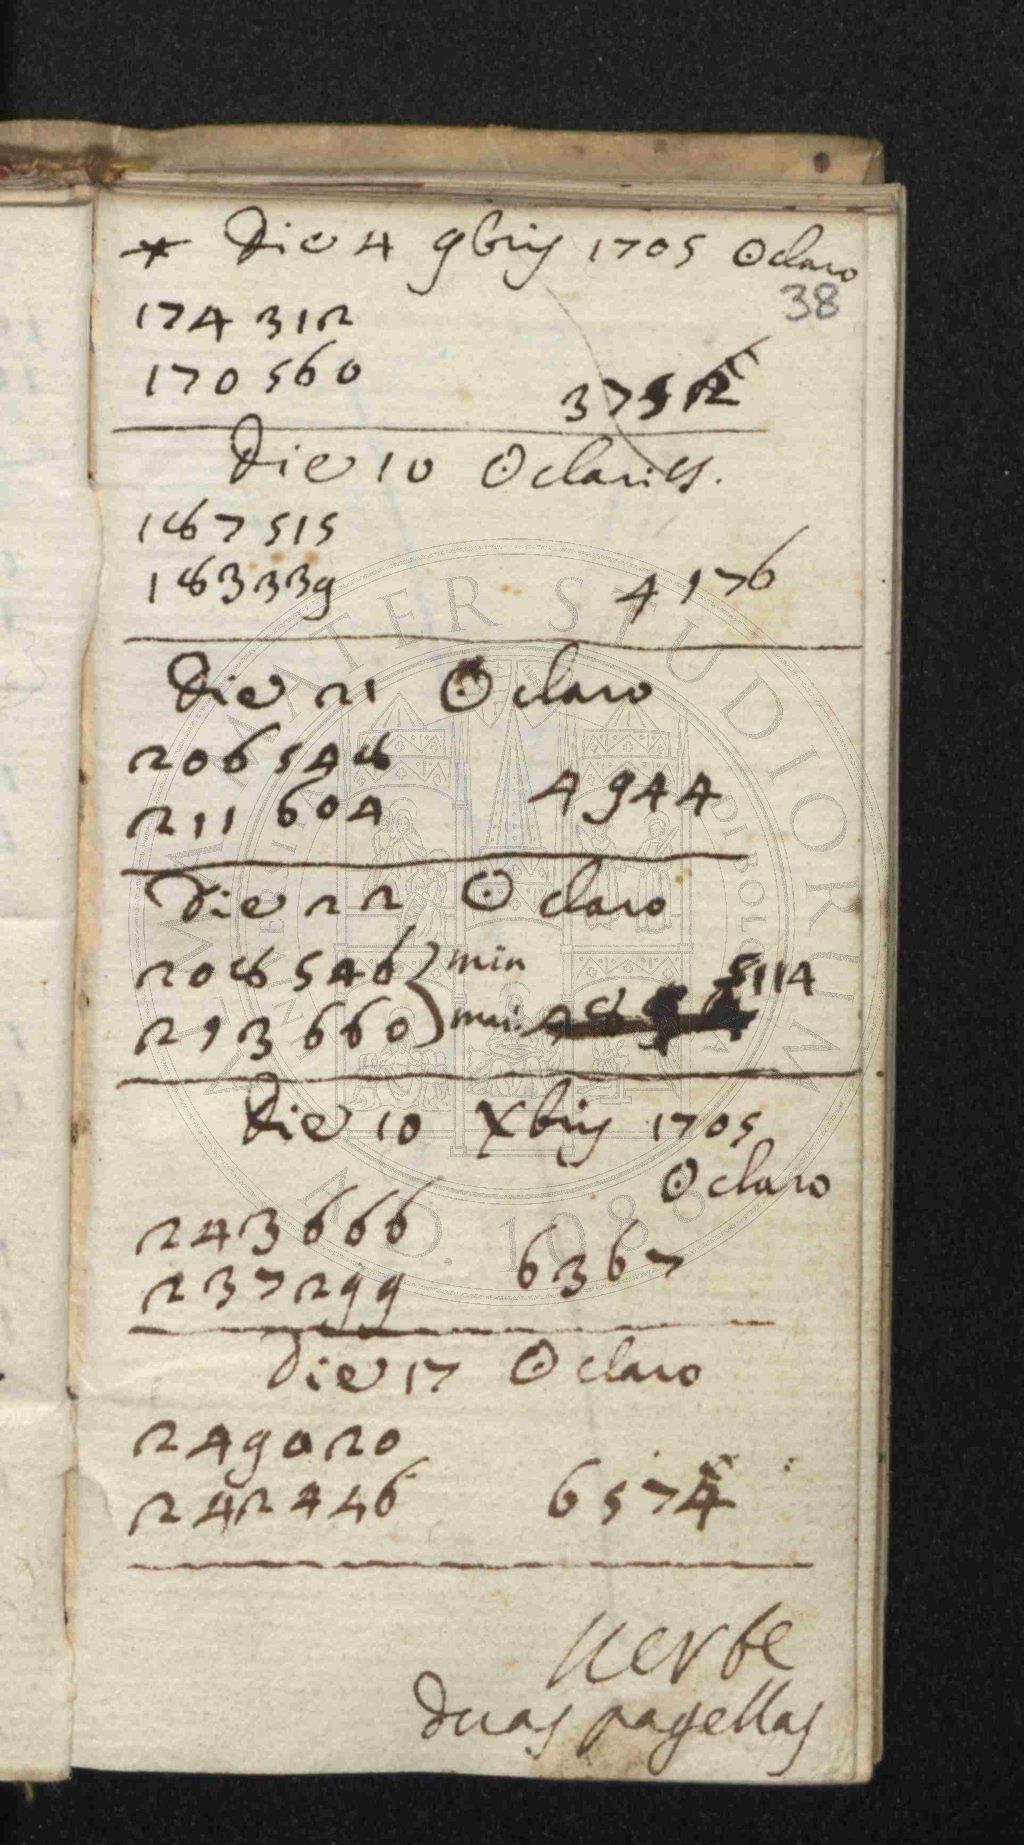 * Die 4 9bris 1705 ☉ claro
38
174312
170560 3752
Die 10 ☉ clariss.
187515
183339 4176
Die 21 ☉ claro
206548
211604 4944
Die 22 ☉ claro
208546 min
213660 5114
Die 10 Xbris 1705
☉ claro
243666
237299 6367
Die 17 ☉ claro
249020
242446 6574
verte
duas pagellas
ALMA MATER STUDIORUM
A.D. 1088